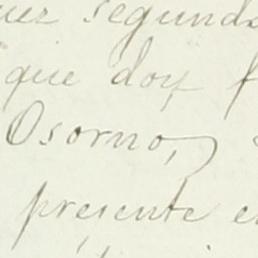 segund
que doy f
Osorno,
presente e